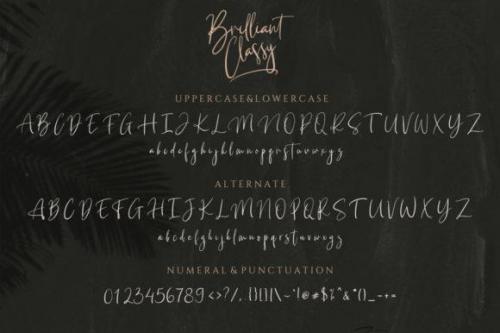 Brilliant
Classy
UPPERCASE&LOWERCASE
ABCDEFGHIJKLMNOPQRSTUVWXYZ
abcdefghijklmnopqrstuvwxyz
ALTERNATE
ABCDEFGHIJKLMNOPQRSTUVWXYZ
abcdefghijklmnopqrstuvwxyz
NUMERAL&PUNCTUATION
0123456789<>?/,{}[]|\~"!@#$%^&*()_-+=